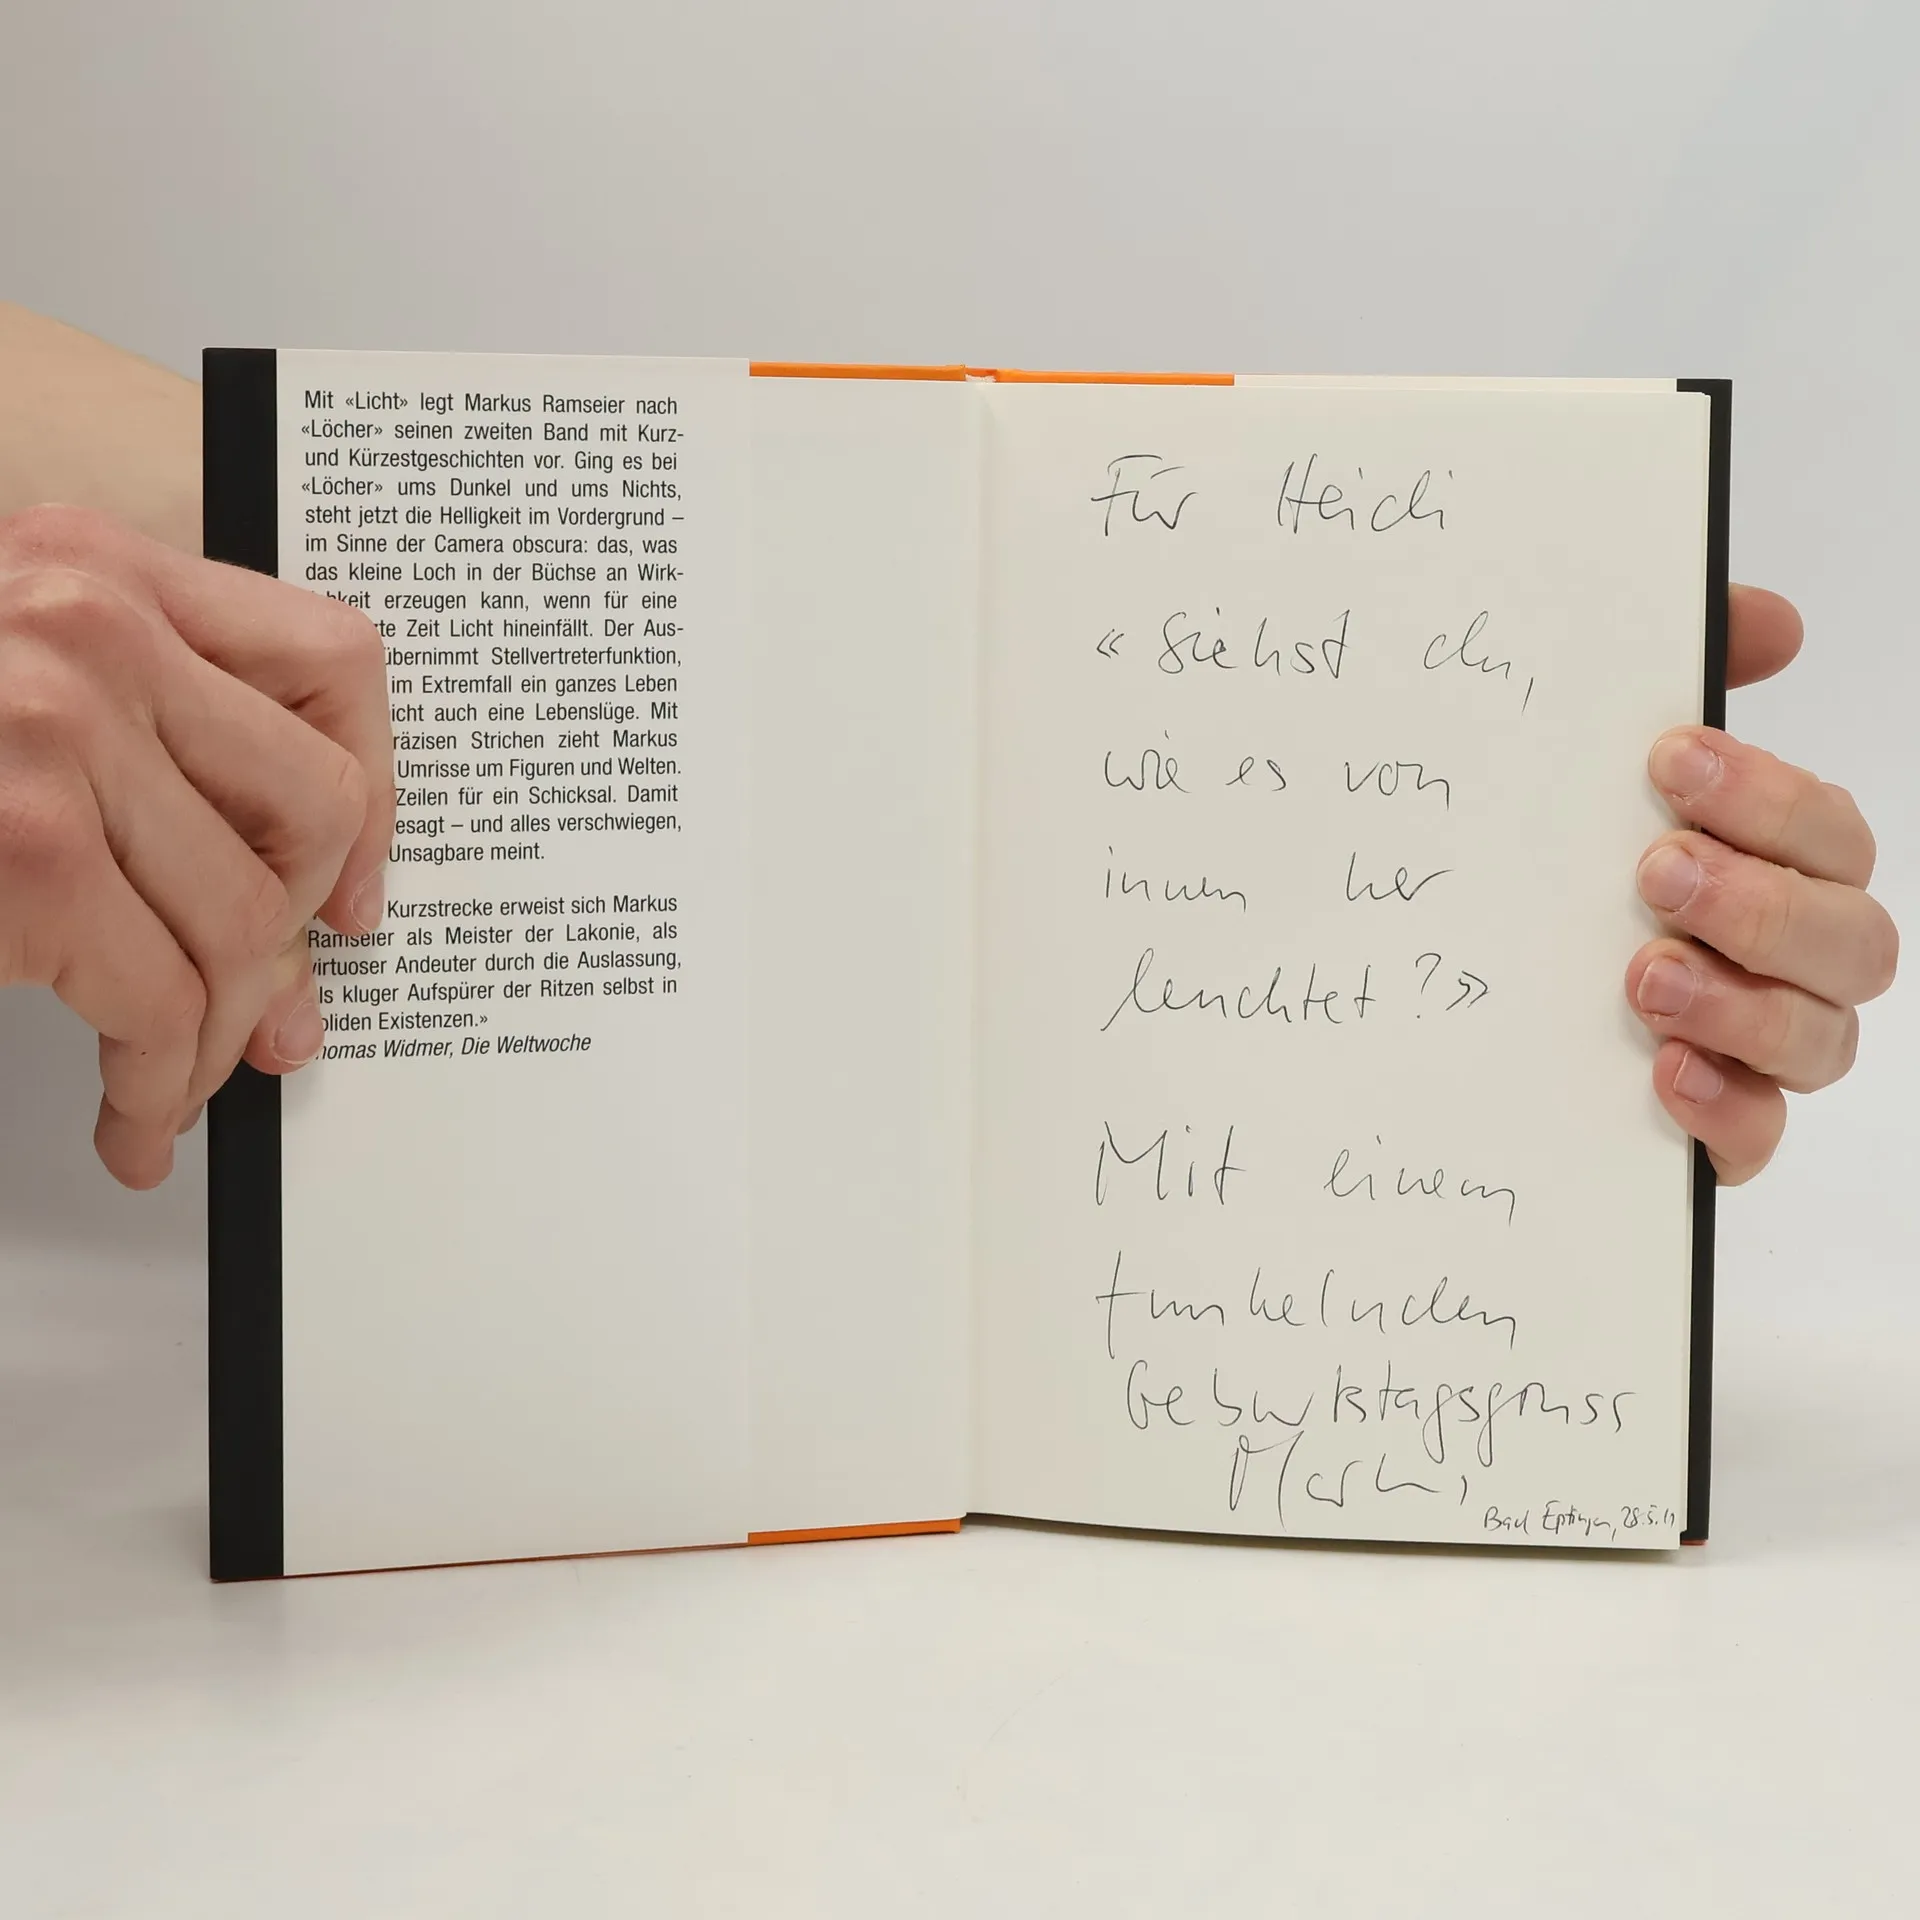 Mit «Licht» legt Markus Ramseier nach
«Löcher» seinen zweiten Band mit Kurz-
und Kürzestgeschichten vor. Ging es bei
«Löcher» ums Dunkel und ums Nichts,
steht jetzt die Helligkeit im Vordergrund –
im Sinne der Camera obscura: das, was
das kleine Loch in der Büchse an Wirk-
erzeugen kann, wenn für eine
Zeit Licht hineinfällt. Der Aus-
übernimmt Stellvertreterfunktion,
im Extremfall ein ganzes Leben
auch eine Lebenslüge. Mit
Strichen zieht Markus
Umrisse um Figuren und Welten.
Zeilen für ein Schicksal. Damit
– und alles verschwiegen,
Unsagbare meint.
Kurzstrecke erweist sich Markus
Ramseier als Meister der Lakonie, als
virtuoser Andeuter durch die Auslassung,
kluger Aufspürer der Ritzen selbst in
Existenzen.»
Widmer, Die Weltwoche
Für Heidi
«Siehst du,
wie es von
innen her
leuchtet?»
Mit einem
funkelnden
Geburtstagsgruss
Markus
Bad Eptingen, 28.5.11